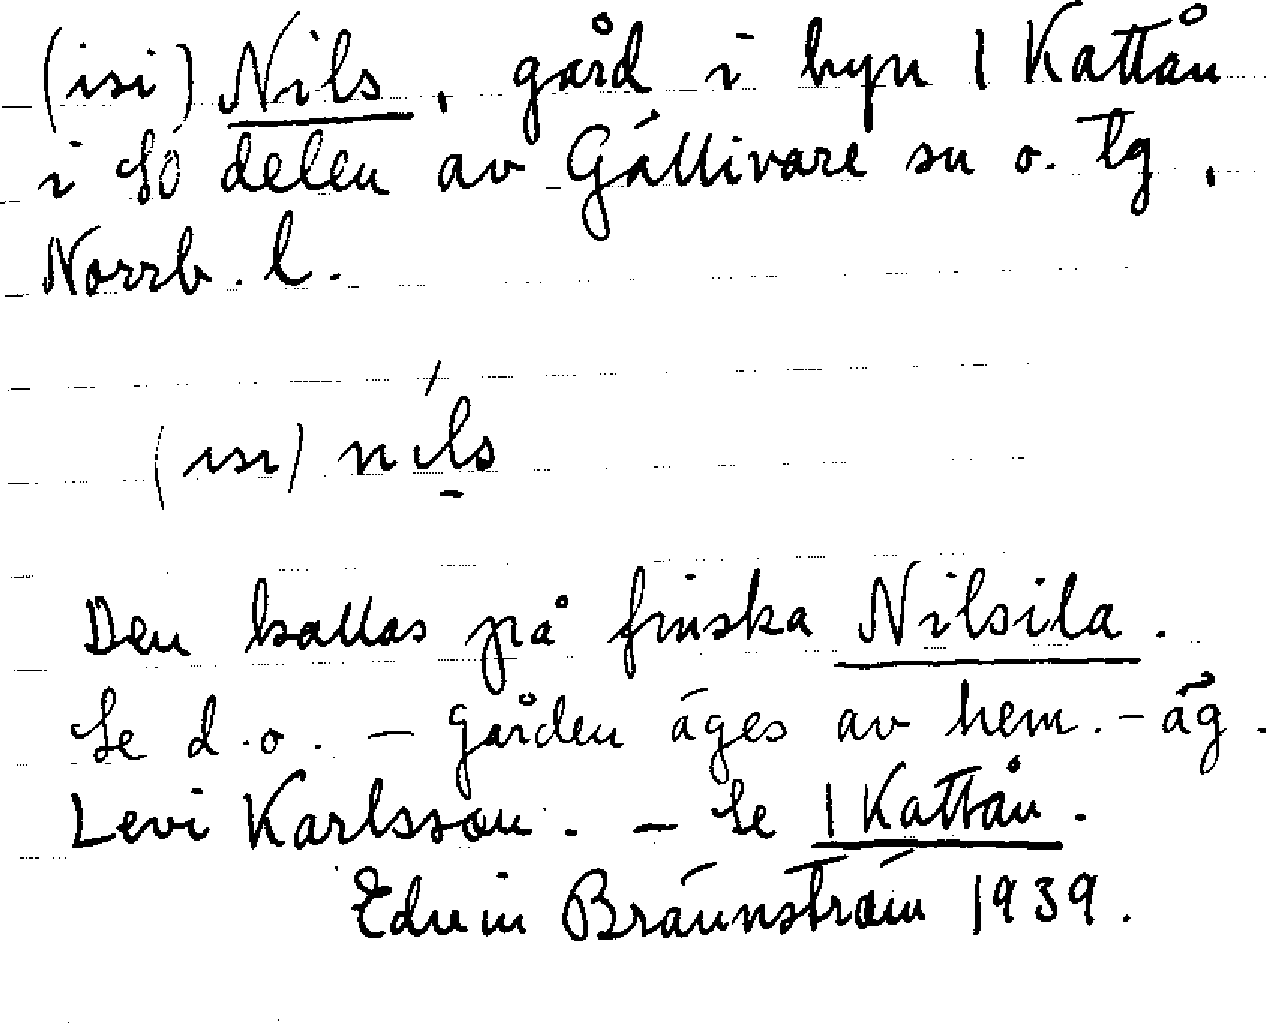 (isi) Nils, gård i byn 1 Kattån
i SÖ delen av Gällivare sn o. tg,
Norrb. l.
(isi) níls
Den kallas på finska Nilsila.
Se d.o. – Gården äges av hem.-äg.
Levi Karlsson. – Se 1 Kattån.
Edvin Brännström 1939.